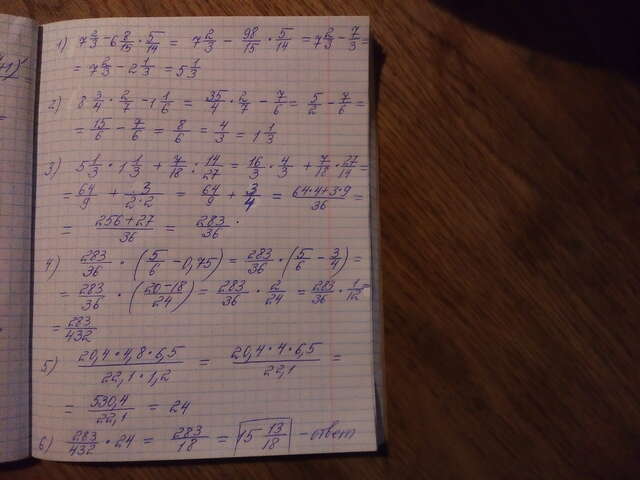 +1)
1) 7 2/3 - 6 8/15 · 5/14 = 7 2/3 - 98/15 · 5/14 = 7 2/3 - 7/3 =
= 7 2/3 - 2 1/3 = 5 1/3
2) 8 3/4 · 2/7 - 1 1/6 = 35/4 · 2/7 - 7/6 = 5/2 - 7/6 =
= 15/6 - 7/6 = 8/6 = 4/3 = 1 1/3
3) 5 1/3 · 1 1/3 + 7/18 : 14/27 = 16/3 · 4/3 + 7/18 · 27/14 =
= 64/9 + 3/(2·2) = 64/9 + 3/4 = (64·4+3·9)/36 =
= (256+27)/36 = 283/36 .
4) 283/36 · (5/6 - 0,75) = 283/36 · (5/6 - 3/4) =
= 283/36 · ((20-18)/24) = 283/36 · 2/24 = 283/36 · 1/12 =
= 283/432
5) (20,4·4,8·6,5)/(22,1·1,2) = (20,4·4·6,5)/22,1 =
= 530,4/22,1 = 24
6) 283/432 · 24 = 283/18 = 15 13/18 - ответ